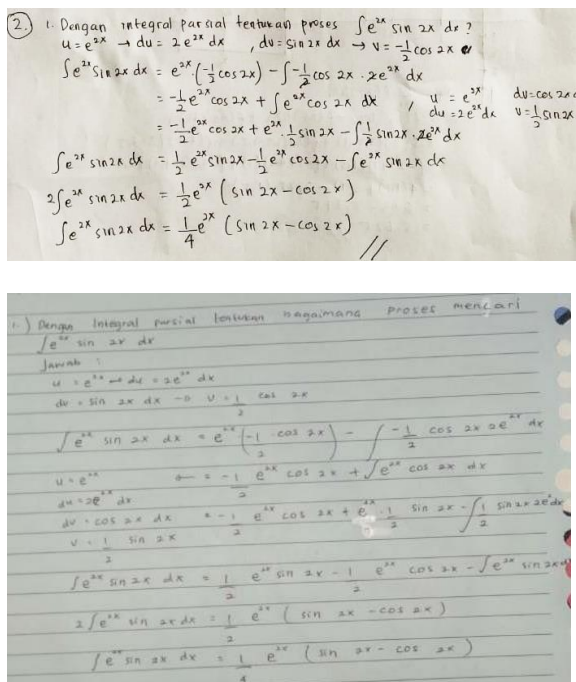 2. 1. Dengan integral parsial tentukan proses ∫e^2x sin 2x dx ?
u = e^2x → du = 2e^2x dx , dv = sin 2x dx → v = -1/2 cos 2x
∫e^2x sin 2x dx = e^2x (-1/2 cos 2x) - ∫-1/2 cos 2x . 2e^2x dx
= -1/2 e^2x cos 2x + ∫e^2x cos 2x dx , u = e^2x dv = cos 2x
= -1/2 e^2x cos 2x + e^2x . 1/2 sin 2x - ∫1/2 sin 2x . 2e^2x dx du = 2e^2x dx v = 1/2 sin 2x
∫e^2x sin 2x dx = 1/2 e^2x sin 2x - 1/2 e^2x cos 2x - ∫e^2x sin 2x dx
2∫e^2x sin 2x dx = 1/2 e^2x (sin 2x - cos 2x)
∫e^2x sin 2x dx = 1/4 e^2x (sin 2x - cos 2x)
1.) Dengan Integral parsial tentukan bagaimana proses mencari
∫e^2x sin 2x dx
Jawab :
u = e^2x → du = 2e^2x dx
dv = sin 2x dx → v = 1/2 cos 2x
∫e^2x sin 2x dx = e^2x (-1/2 cos 2x) - ∫-1/2 cos 2x 2e^2x dx
u = e^2x = -1/2 e^2x cos 2x + ∫e^2x cos 2x dx
du = 2e^2x dx
dv = cos 2x dx = -1/2 e^2x cos 2x + e^2x . 1/2 sin 2x - ∫1/2 sin 2x 2e^2x dx
v = 1/2 sin 2x
∫e^2x sin 2x dx = 1/2 e^2x sin 2x - 1/2 e^2x cos 2x - ∫e^2x sin 2x d
2∫e^2x sin 2x dx = 1/2 e^2x (sin 2x - cos 2x)
∫e^2x sin 2x dx = 1/4 e^2x (sin 2x - cos 2x)